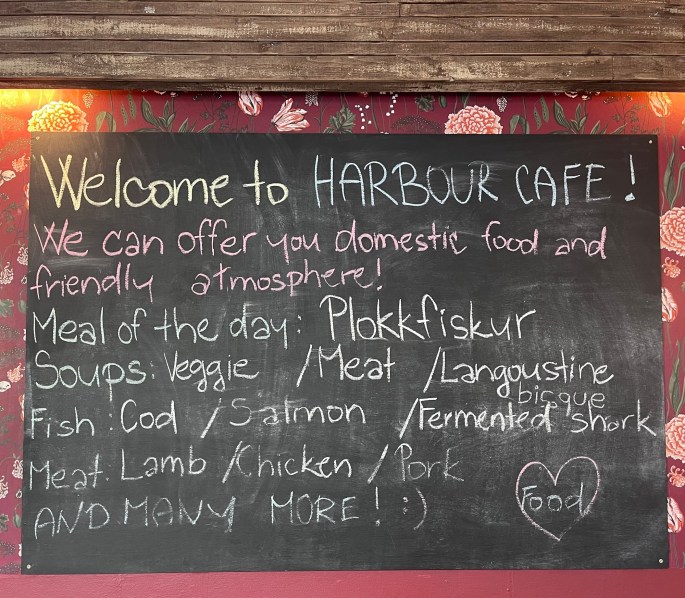 Welcome to HARBOUR CAFE!
We can offer you domestic food and
friendly atmosphere!
Meal of the day: Plokkfiskur
Soups: Veggie /Meat /Langoustine
bisque
Fish: Cod /Salmon /Fermented shark
Meat. Lamb /Chicken / Pork
AND MANY MORE! :)
Food